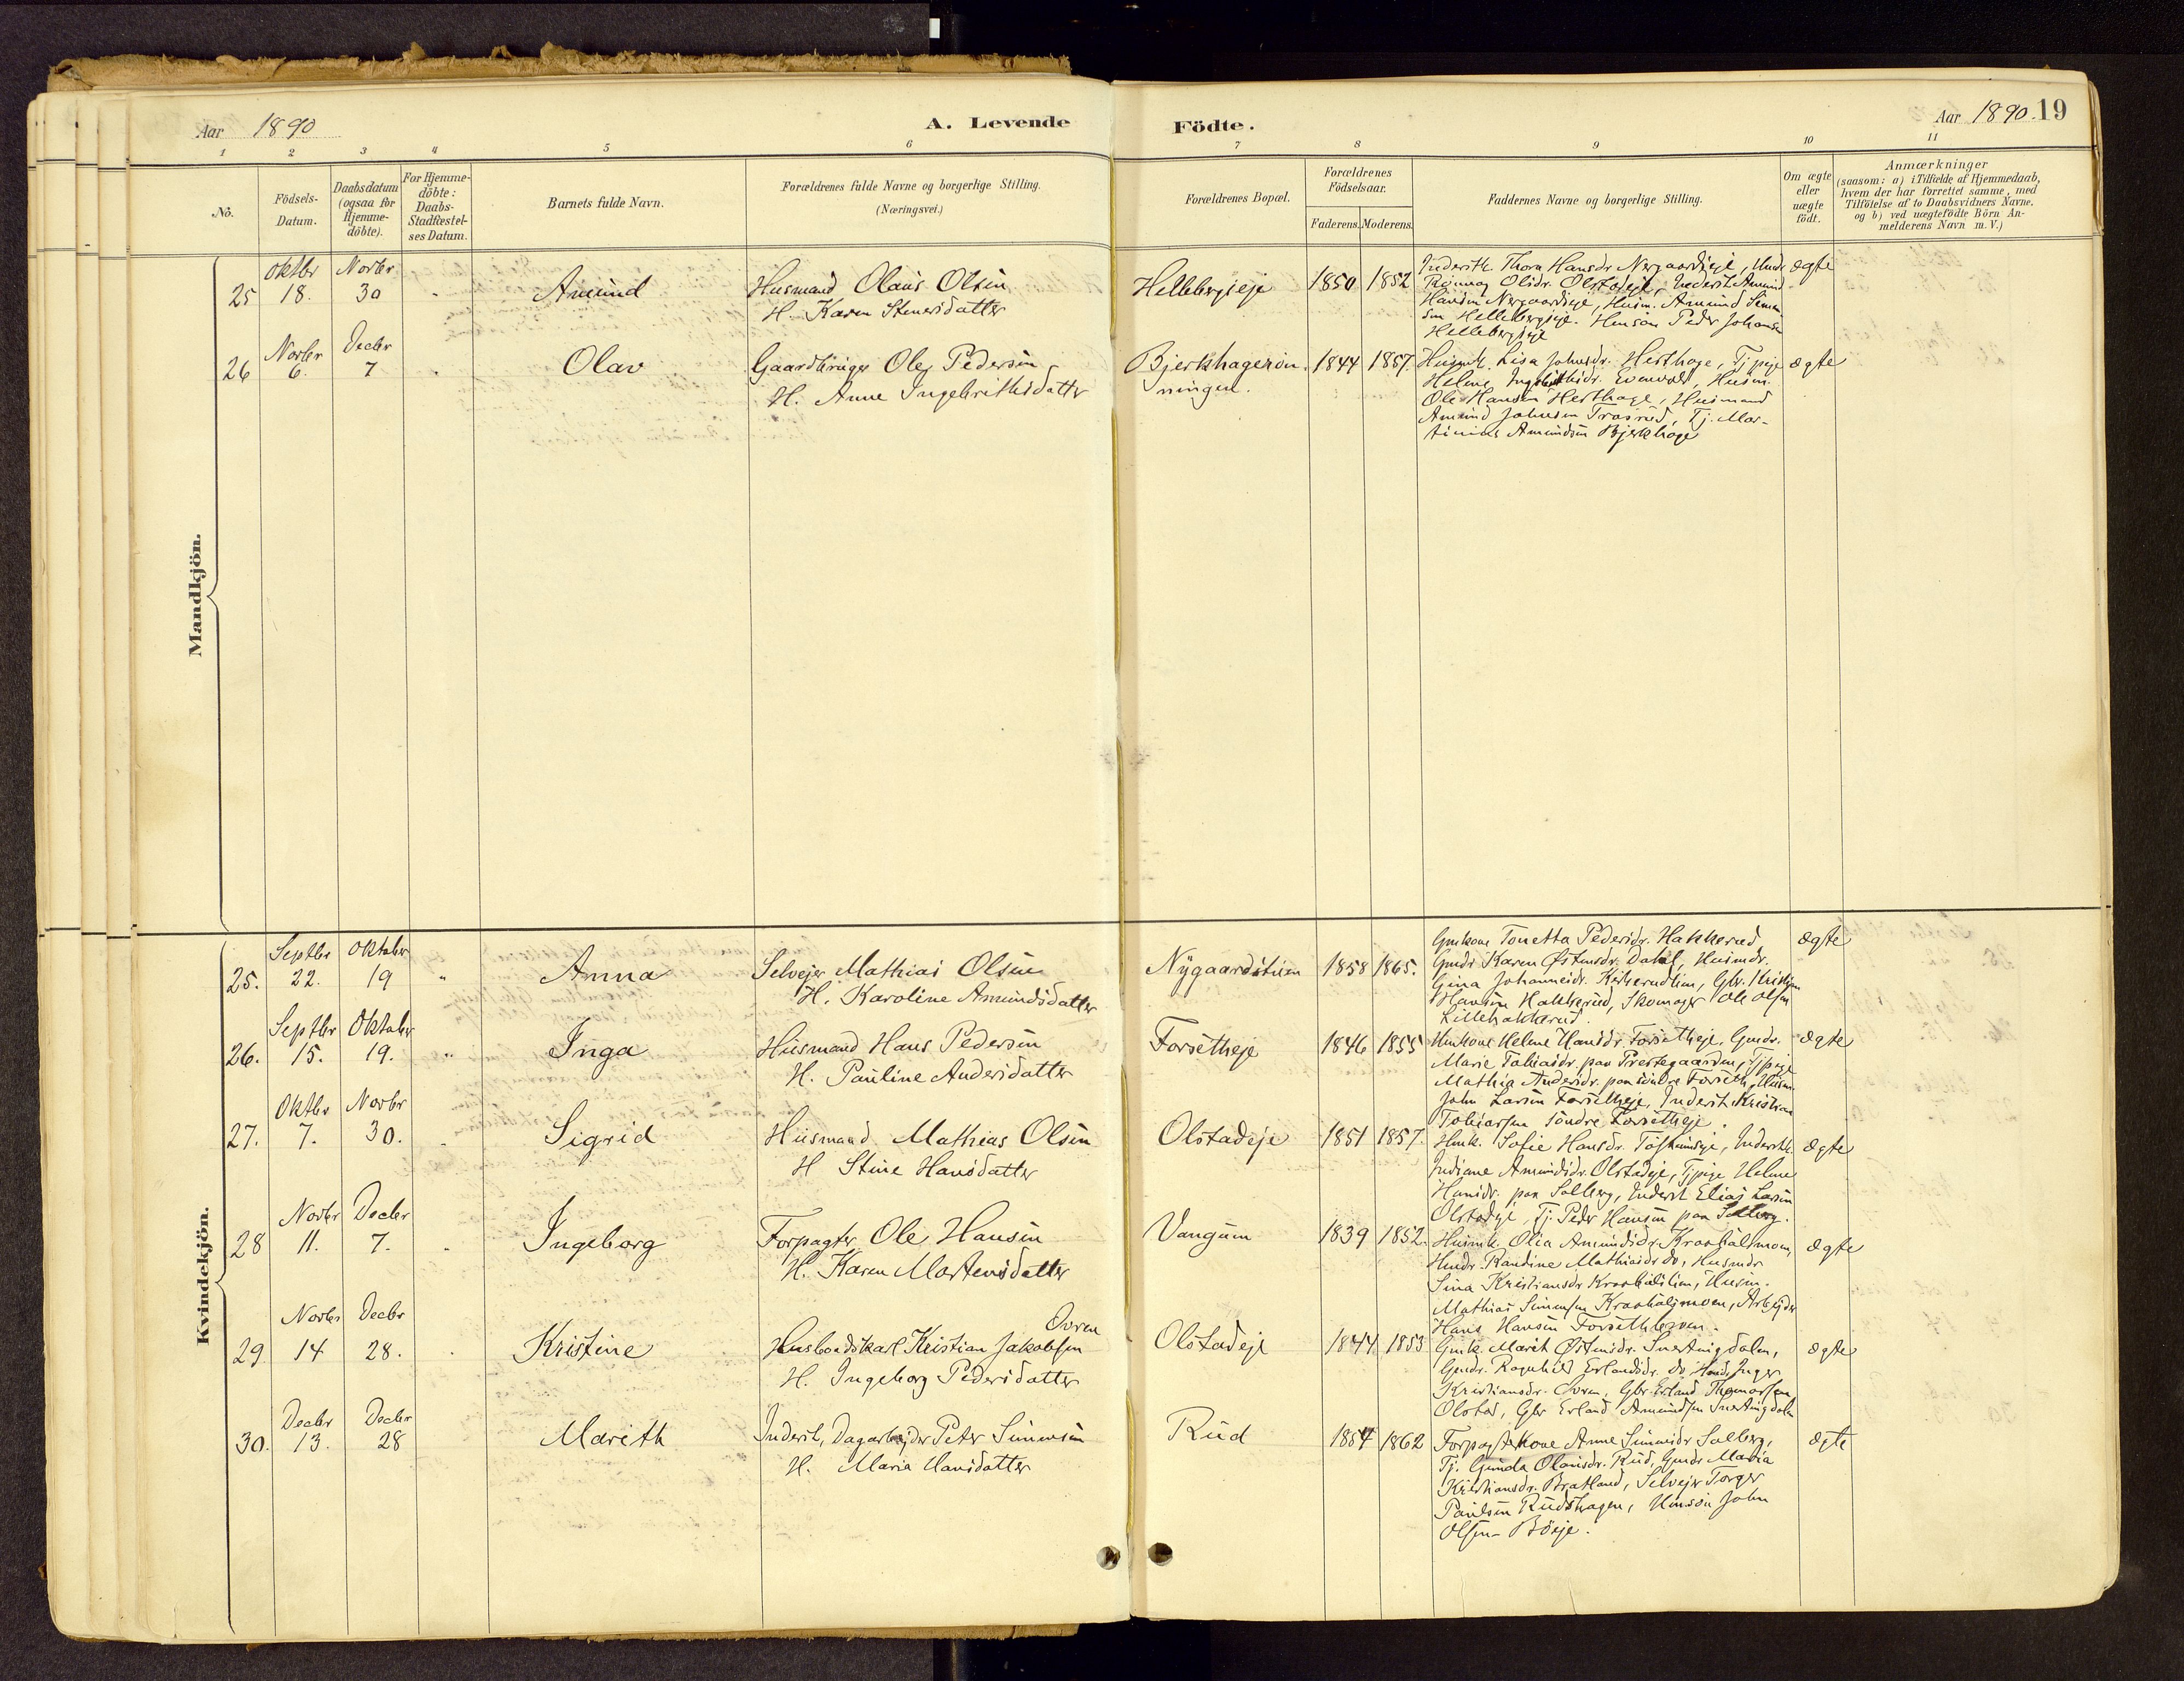 Aar 1890
A. Levende
Födte.
Aar 1890. 19
1 2 3 4 5 6 7 8 9 10 11
No.
Födsels-Datum.
Daabsdatum (ogsaa for Hjemme-döbte).
For Hjemme-döbte: Daabs-Stadfæstel-ses Datum.
Barnets fulde Navn.
Forældrenes fulde Navne og borgerlige Stilling.
(Næringsvei.)
Forældrenes Bopæl.
Forældrenes Födselsaar.
Faderens. Moderens.
Faddernes Navne og borgerlige Stilling.
Om ægte eller uægte födt.
Anmærkninger
(saasom: a) i Tilfælde af Hjemmedaab,
hvem der har forrettet samme, med
Tilföielse af to Daabsvidners Navne.
og b) ved uægtefödte Börn An-
melderens Navn m.V.)
Mandkjön.
25 Oktbr 18. Novbr 30 Amund
Husmand Olaus Olsen
H. Karen Stenersdatter
Hellebergieje 1850 1852
Inderstk. Thora Hansdr Nergaardseje,
Rönnog Olsdr. Olstadeje, Inderst Amund
Hansen Nergaardseje, Husm. Amund Simen
sen Hellebergseje. Peder Johansen
Hellebergseje
ægte
26 Novbr 6. Decbr 7 Olav
Gaardbruger Ole Pedersen
H. Anne Ingebrethsdatter
Bjerkhagerön-
ningen.
1844 1857.
Husmk. Lisa Johnsdr. Hesthage, Tjpige
Helene Ingebrethsdr. Evenvold, Husm.
Ole Hansen Hesthage, Husmand
Amund Johnsen Trosrud, Tj. Mar-
tinius Amundsen Bjerkhage
ægte
Kvindekjön.
25. Septbr 22. Oktober 19 " Anna
Selvejer Mathias Olsen
H. Karoline Amundsdatter
Nygaardstuen 1858 1865.
Gmkone Tonetta Pedersdr. Hakkerud,
Gmdr Karen Østensdr. Dahl, Husmdr.
Gina Johannesdr. Gbr. Kristian
Hansen Hakkerud, Skomager Ole Olsen
Lillehakkerud.
ægte
26. Septbr 15. Oktober 19. " Inga
Husmand Hans Pedersen
H. Pauline Andersdatter
Forsetheje 1846 1855
Hmkone Helene Hansdr. Forsetheje, Gmdr.
Marie Tobiasdr. paa Prestegaarden, Tjpige
Mathia Andersdr. paa söndre Forseth, Husm.
John Larsen Forsetheje, Inderst Kristian
Tobiassen söndre Forsetheje.
ægte
27. Oktbr 7. Novbr 30. Sigrid
Husmand Mathias Olsen
H Stine Hansdatter
Olstadeje 1851 1857.
Hmk. Sofie Hansdr. Inderstk.
Indiane Amundsdr. Olstadeje, Tjpige Helene
Hansdr. paa Solberg, Inderst Elias Larsen
Olstadeje, Tj. Peder Hansen paa Solberg.
ægte
28 Novbr 11. Decbr 7. Ingeborg
Forpagter Ole Hansen
H. Karen Mortensdatter
Vangum 1839 1852.
Husmk. Olia Amundsdr. Kraabölsmoen,
Hmdr. Randine Mathiasdr do, Husmdr
Sina Kristiansdr Kraabölslien, Husm.
Mathias Simensen Kraabölsmoen, Arbejder
Hans Hansen
ægte
29. Novbr 14 Decbr 28. Kristine
Husbondskarl Kristian Jakobsen Övren
H. Ingeborg Pedersdatter
Olstadeje 1844 1853
Gmk. Marit Østensdr. Snertingdalen,
Gmdr. Ragnhild Erlandsdr. do Inger
Kristiansdr. Övren, Gbr. Erland Thomassen
Olstad, Gbr Erland Amundsen Snertingdalen
ægte
30. Decbr 13. Decbr 28 Marith
Inderst, Dagarbejder Peter Simensen
H. Maria Hansdatter
Rud 1854 1862
Forpagterkone Anne Simensdr Solberg,
Tj. Gunda Olausdr. Rud, Gmdr Maria
Kristiansdr. Bratland, Selvejer Torger
Paulsen Rudshagen, Hmsön John
Olsen Böeje.
ægte